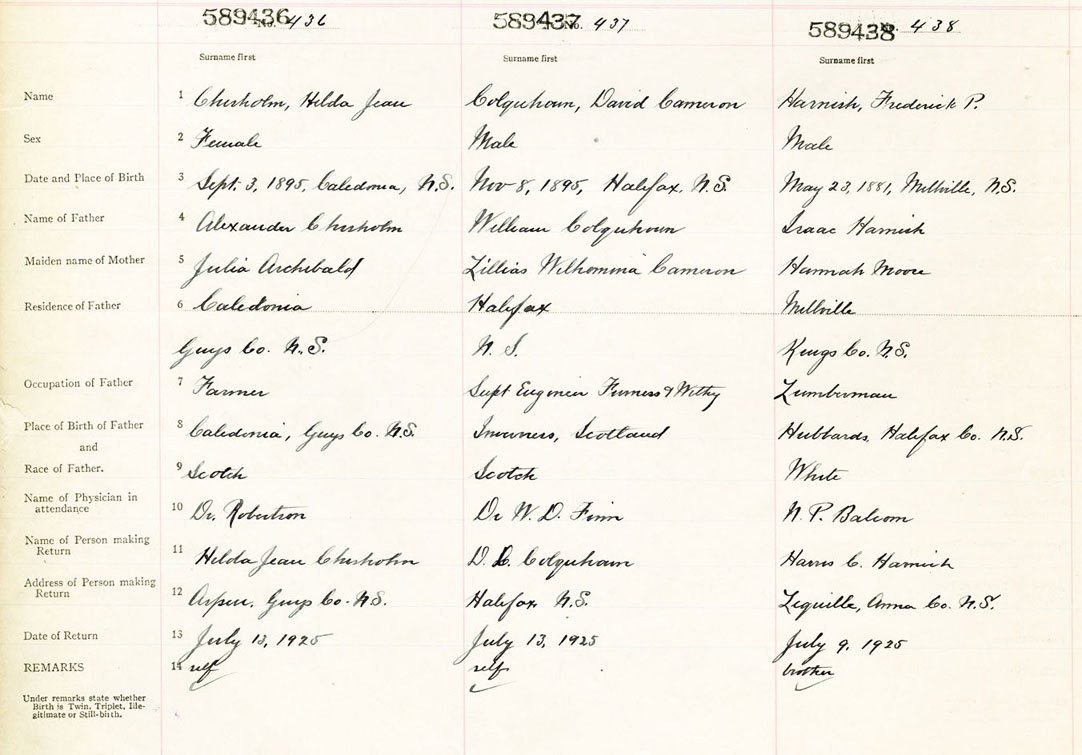 589436 No. 436 589437 No. 437 589438 No. 438
Surname first Surname first Surname first
Name 1 Chisholm, Hilda Jean Colquhoun, David Cameron Harnish, Frederick P.
Sex 2 Female Male Male
Date and Place of Birth 3 Sept. 3, 1895, Caledonia, N.S. Nov 8, 1895, Halifax, N.S. May 23, 1881, Millville, N.S.
Name of Father 4 Alexander Chisholm William Colquhoun Isaac Harnish
Maiden name of Mother 5 Julia Archibald Lillias Wilhomina Cameron Hannah Moore
Residence of Father 6 Caledonia Halifax Millville
Guys Co. N.S. N.S. Kings Co. N.S.
Occupation of Father 7 Farmer Supt Engineer Furness & Withy Lumberman
Place of Birth of Father 8 Caledonia, Guys Co. N.S. Inverness, Scotland Hubbards, Halifax Co. N.S.
and
Race of Father. 9 Scotch Scotch White
Name of Physician in
attendance 10 Dr. Robertson Dr W. D. Finn N. P. Balcom
Name of Person making
Return 11 Hilda Jean Chisholm D. C. Colquhoun Harris C. Harnish
Address of Person making
Return 12 Aspen, Guys Co. N.S. Halifax N.S. Lequille, Anna Co. N.S.
Date of Return 13 July 13, 1925 July 13, 1925 July 9, 1925
REMARKS 14 self self brother
Under remarks state whether
Birth is Twin, Triplet, Ille-
gitimate or Still-birth.